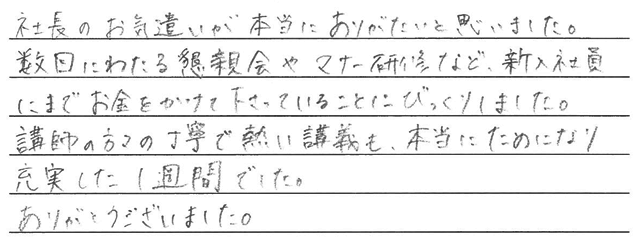 社長のお気遣いが本当にありがたいと思いました。
数回にわたる懇親会やマナー研修など、新入社員
にまでお金をかけて下さっていることにびっくりしました。
講師の方々の丁寧で熱い講義も、本当にためになり
充実した1週間でした。
ありがとうございました。